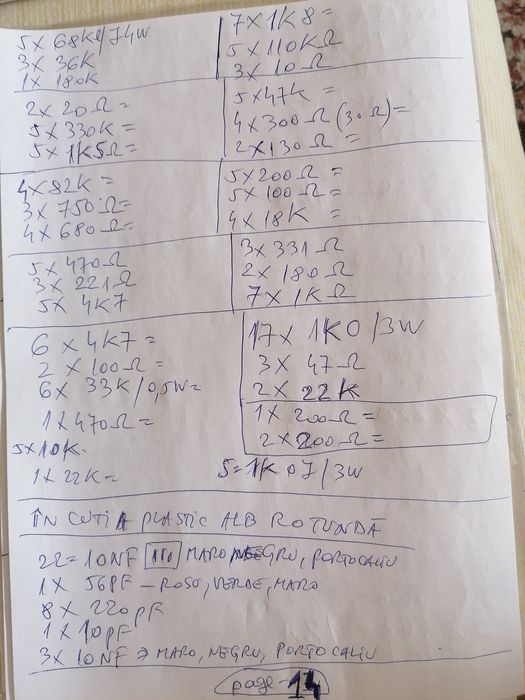 5 x 68K / 74W
3 x 36K
1 x 180K
7 x 1K8 =
5 x 110KΩ
3 x 10Ω
2 x 20Ω =
5 x 330K =
5 x 1K5Ω =
5 x 47K =
4 x 300Ω (30Ω) =
2 x 130Ω =
4 x 82K =
3 x 750Ω =
4 x 680Ω =
5 x 200Ω =
5 x 100Ω =
4 x 18K =
5 x 470Ω
3 x 221Ω
5 x 4K7
3 x 331Ω
2 x 180Ω
7 x 1KΩ
6 x 4K7 =
2 x 100Ω =
6 x 33K / 0,5W =
1 x 470Ω =
5 x 10K
1 x 22K =
17 x 1K0 / 3W
3 x 47Ω
2 x 22K
1 x 200Ω =
2 x 200Ω =
5 = 1K 0J / 3W
ÎN CUTIA PLASTIC ALB ROTUNDĂ
22 = 10NF MARO NEGRU, PORTOCALIU
1 x 56PF – ROSU, VERDE, MARO
8 x 220PF
1 x 10PF
3 x 10NF MARO, NEGRU, PORTOCALIU
page - 14